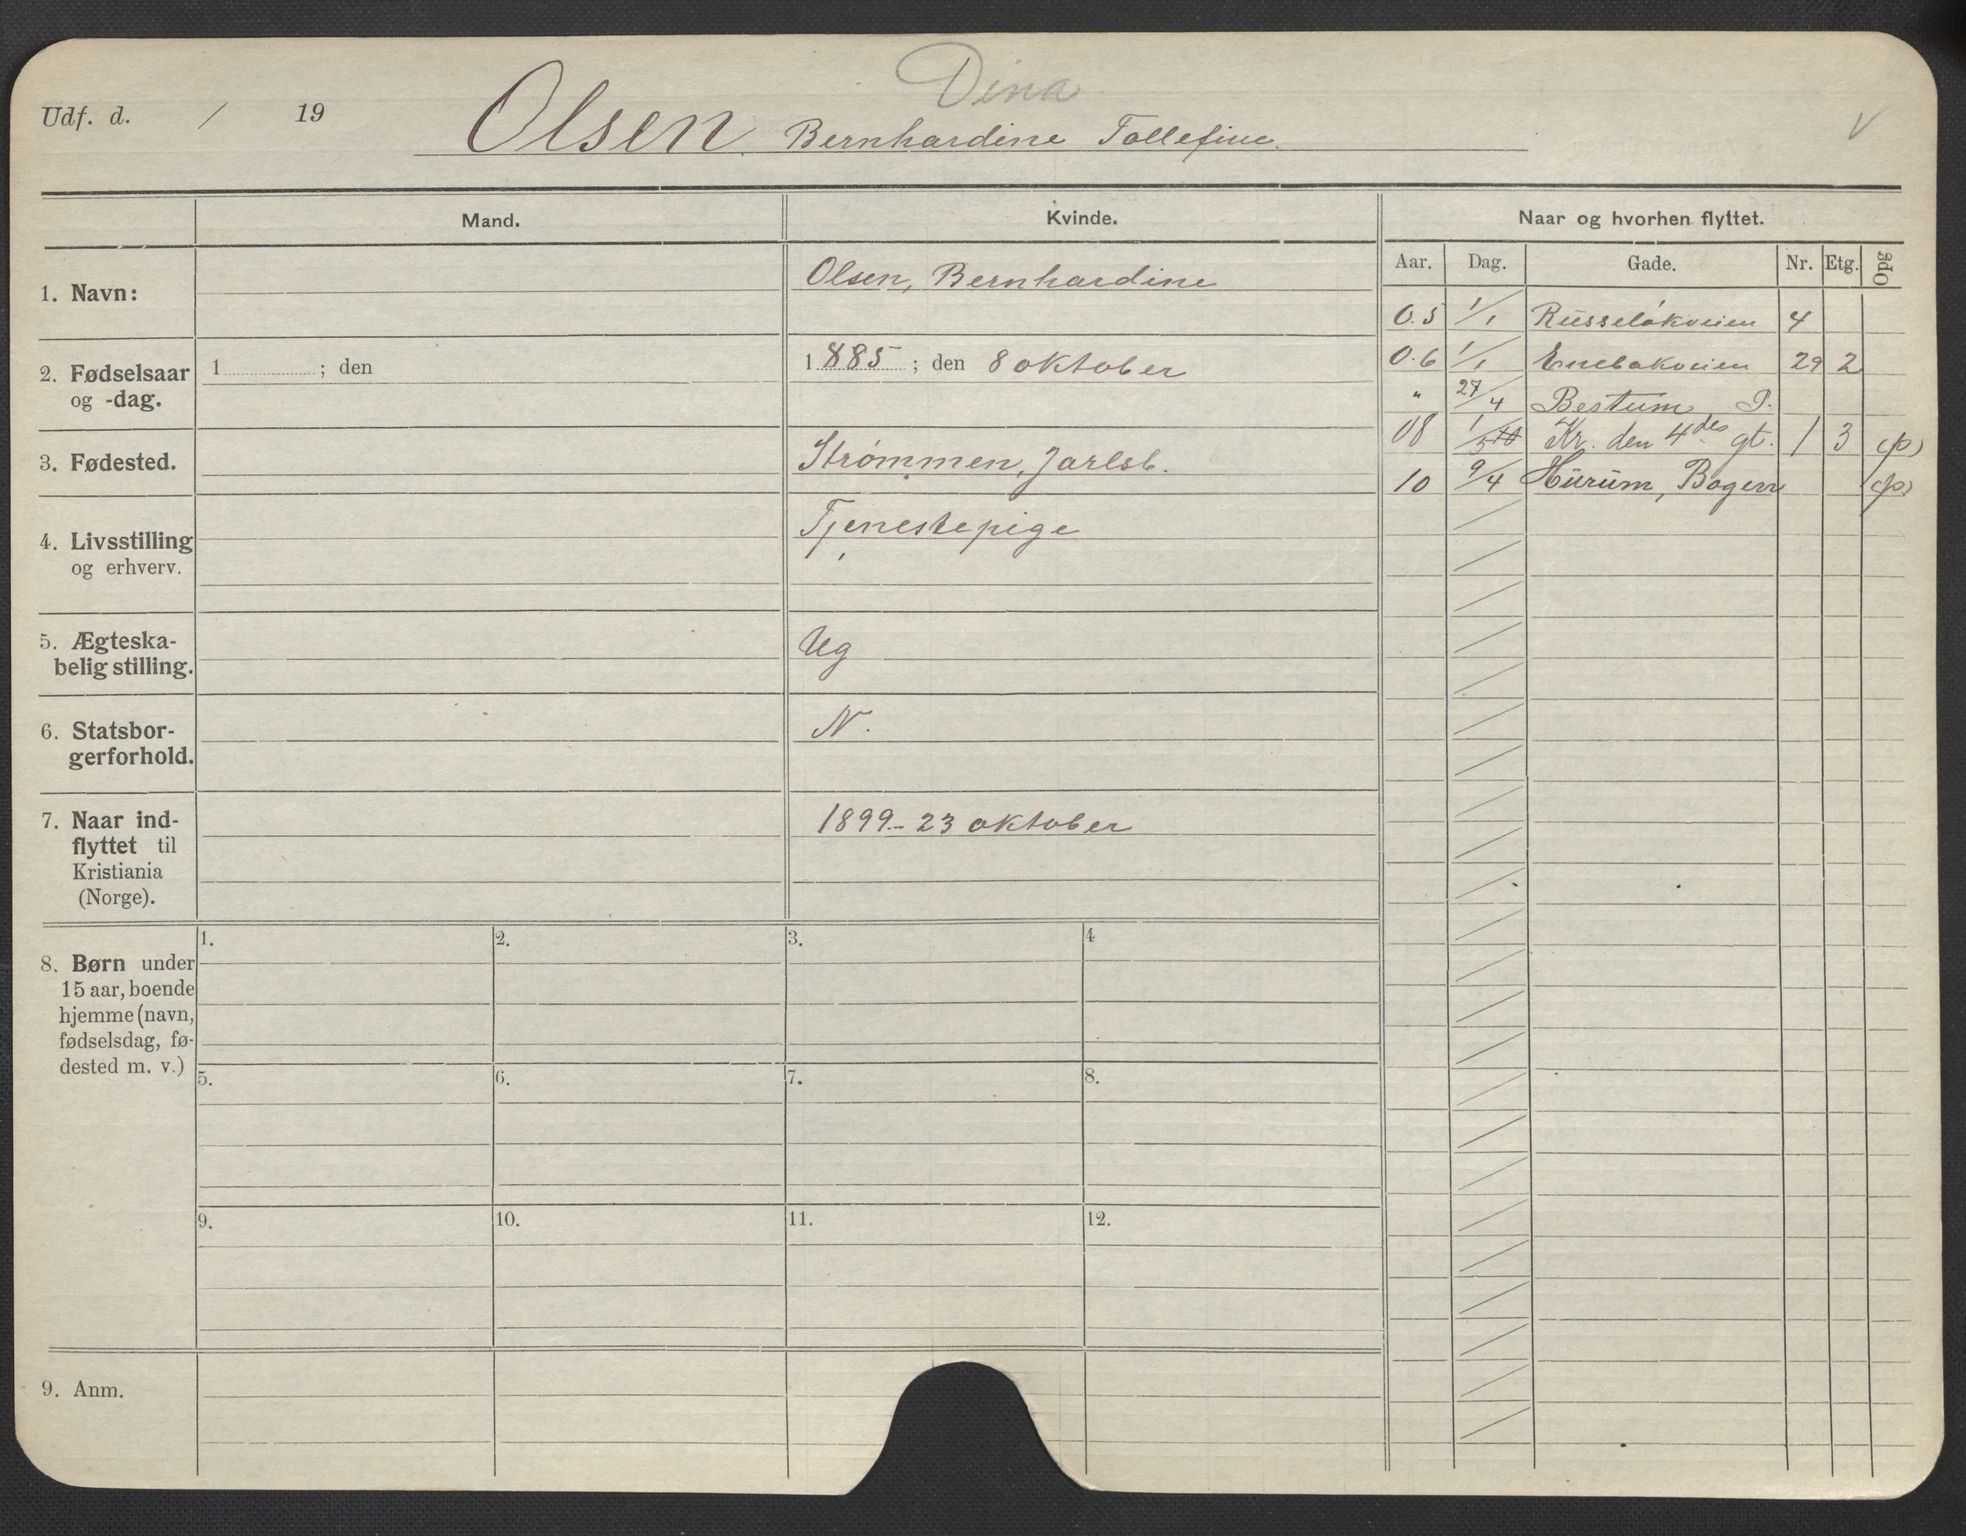 Dina
Udf. d. / 19 Olsen, Bernhardine Tollefine. V
Mand. Kvinde. Naar og hvorhen flyttet.
Aar. Dag. Gade. Nr. Etg. Opg
1. Navn: Olsen, Bernhardine
05 1/1 Russeløkveien 4
2. Fødselsaar og -dag. 1 ; den 1885 ; den 8 oktober
06 1/1 Enebakveien 29 2
" 27/4 Bestum P.
08 1/5 Kr. den 4des gt. 1 3 (p)
3. Fødested. Strømmen, Jarlsb.
10 9/4 Hurum, Bogen (p)
4. Livsstilling og erhverv. Tjenestepige
5. Ægteska-
belig stilling. Ug
6. Statsbor-
gerforhold. N.
7. Naar ind-
flyttet til
Kristiania
(Norge). 1899 - 23 oktober
8. Børn under
15 aar, boende
hjemme (navn,
fødselsdag, fø-
dested m. v.)
1. 2. 3. 4
5. 6. 7. 8.
9. 10. 11. 12.
9. Anm.